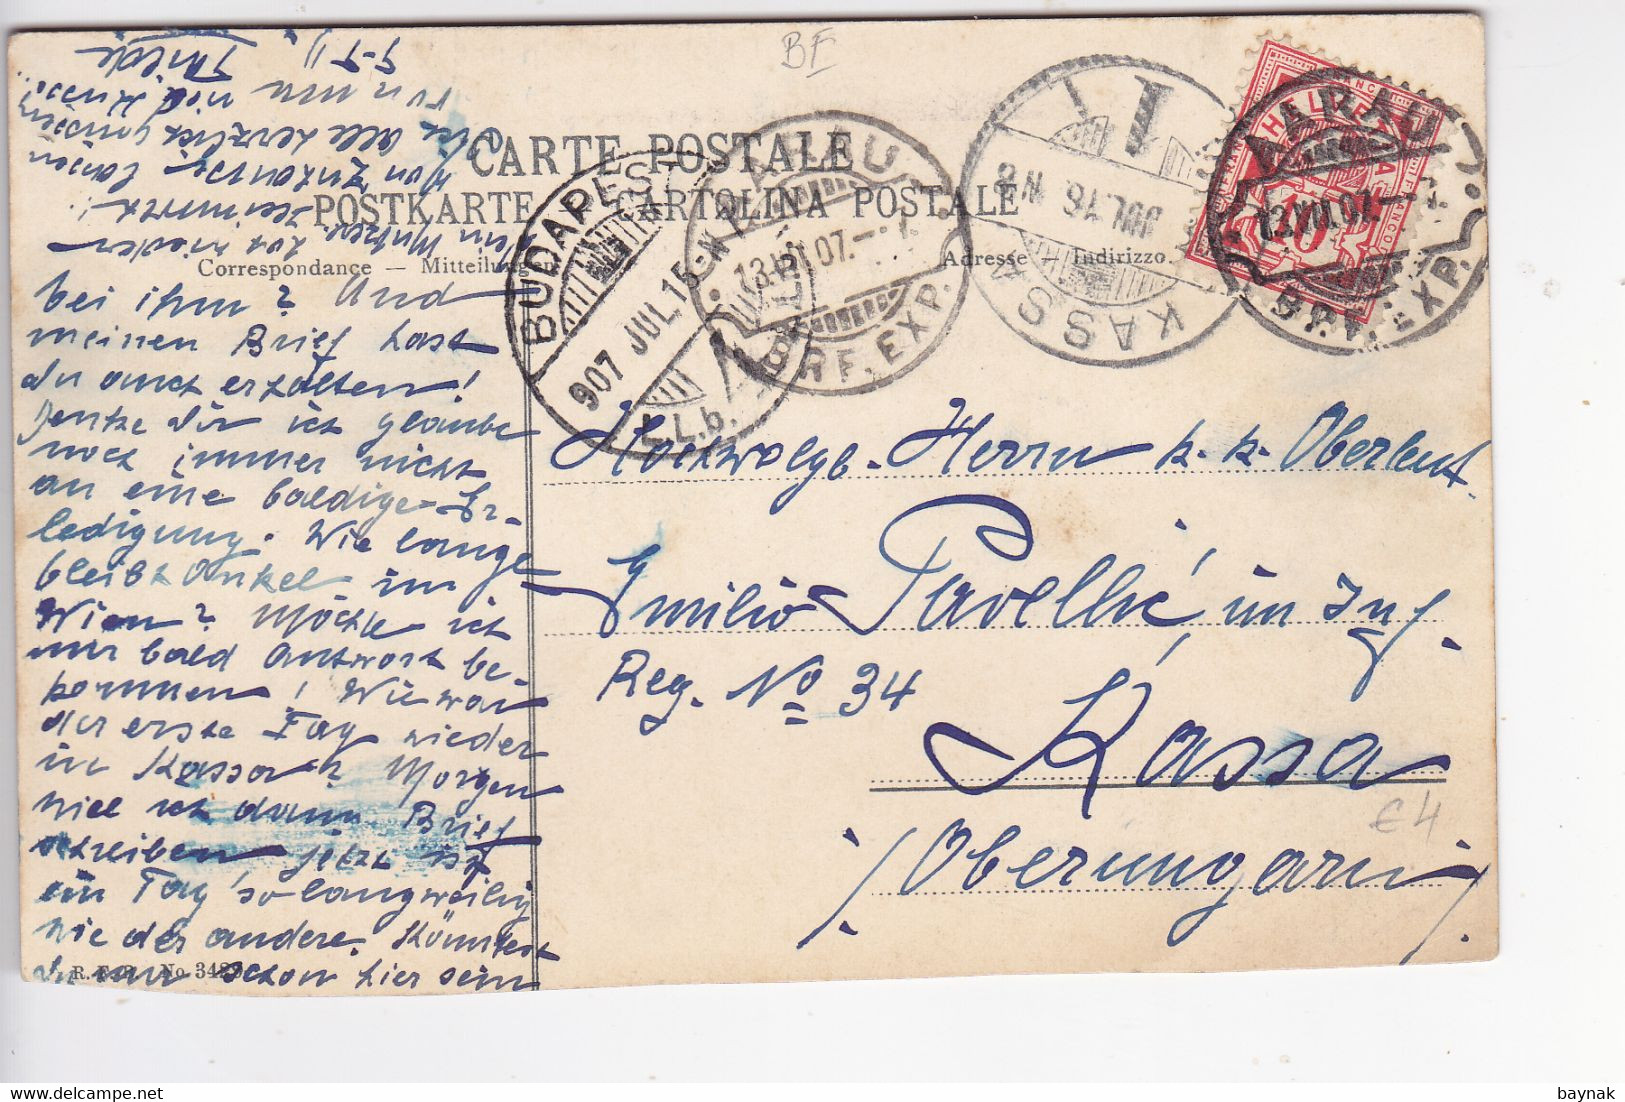 BE
CARTE POSTALE
POSTKARTE CARTOLINA POSTALE
Correspondance — Mitteilungen
Adresse — Indirizzo.
AARAU
13.VII.07.
BRF. EXP.
AARAU
13.VII.07.
BRF. EXP.
BUDAPEST
907 JUL 15
L.L.b.
KASSA
JUL 16
HELVETIA
10
bei ihm? Und
meinen Brief hast
du auch erhalten!
Denke dir ich glaube
noch immer nicht
an eine baldige Er-
ledigung. Wie lange
bleibt Onkel in
Wien? Möchte ich
nur bald Antwort be-
kommen! Wie war
der erste Tag wieder
in Kassa? Morgen
will ich dann Brief
schreiben, jetzt ist
ein Tag so langweilig
wie der andere. Könntest
du nur schon hier sein
mein
wieder
von
dich alle herzlichst
von
Hochwolgb. Herrn k. k. Oberleut.
Emilio Pavellić im Inf.
Reg. No 34
Kássa
/Oberungarn/
€ 4
R. No 342
baynak